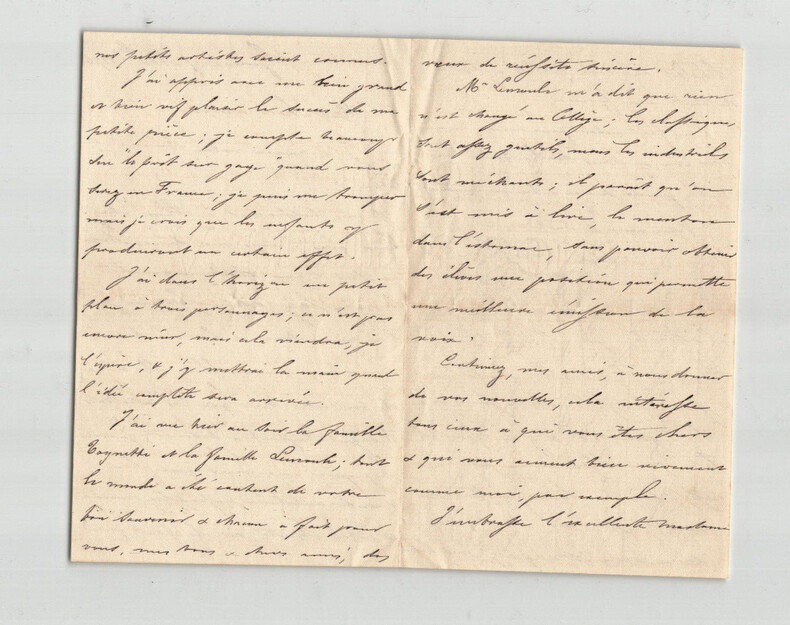 nos petits artistes soient connus.
J'ai appris avec un bien grand
et bien vif plaisir le succès de ma
petite pièce ; je compte beaucoup
sur "le prêt sur gage" quand vous
serez en France ; je puis me tromper
mais je crois que les enfants y
produiront un certain effet.
J'ai dans l'horizon un petit
plan à trois personnages ; ce n'est pas
encore mûr, mais cela viendra, je
l'espère, & j'y mettrai la main quand
l'idée complète sera arrivée.
J'ai vu hier au soir la famille
et la famille ; tout
le monde a été content de votre
bon souvenir & chacun a fait pour
vous, mes bons & chers amis, des
vœux de réussite sincère.
Mr m'a dit que rien
n'est changé au Collège ; les classiques
sont assez gentils, mais les industriels
sont méchants ; il paraît qu'on
s'est mis à lire, le menton
dans l'estomac, sans pouvoir obtenir
des élèves une position qui permette
une meilleure émission de la
voix.
Continuez, mes amis, à nous donner
de vos nouvelles, cela intéresse
tous ceux à qui vous êtes chers
& qui vous aiment bien vivement
comme moi, par exemple.
J'embrasse l'excellente madame